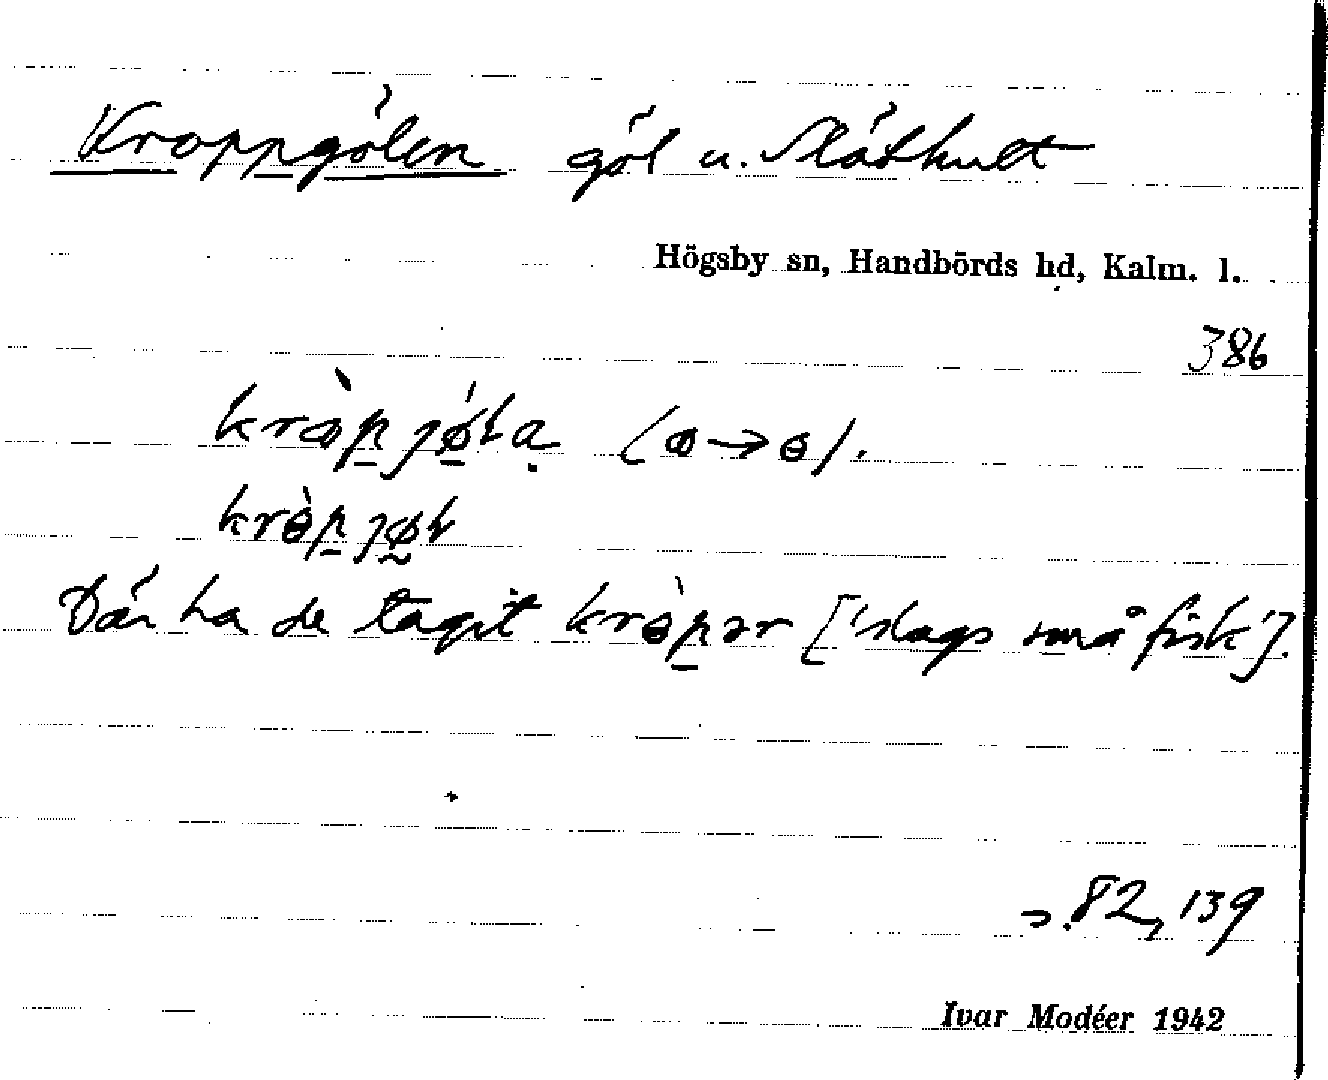 Kroppgölen göl u. Slöthult
Högsby sn, Handbörds hd, Kalm. l.
386
(ꝏ→ɵ).
Där ha de tagit krɵ̀pər ['slags små fisk'].
s. 82, 139
Ivar Modéer 1942